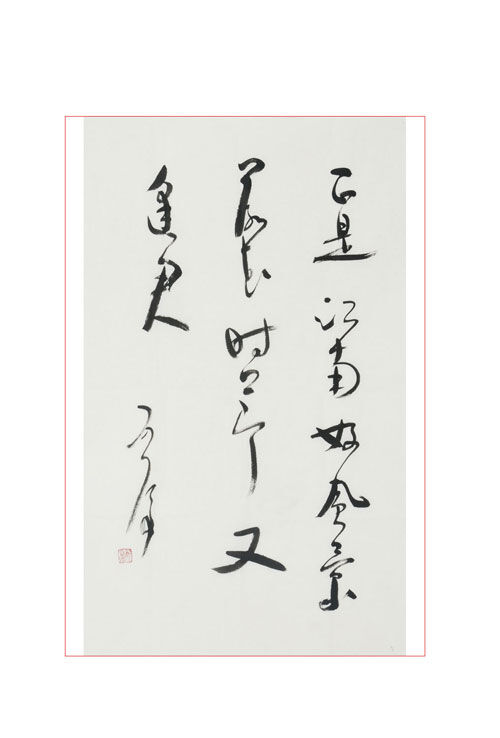 正是江南好风景
落花时节又
逢君